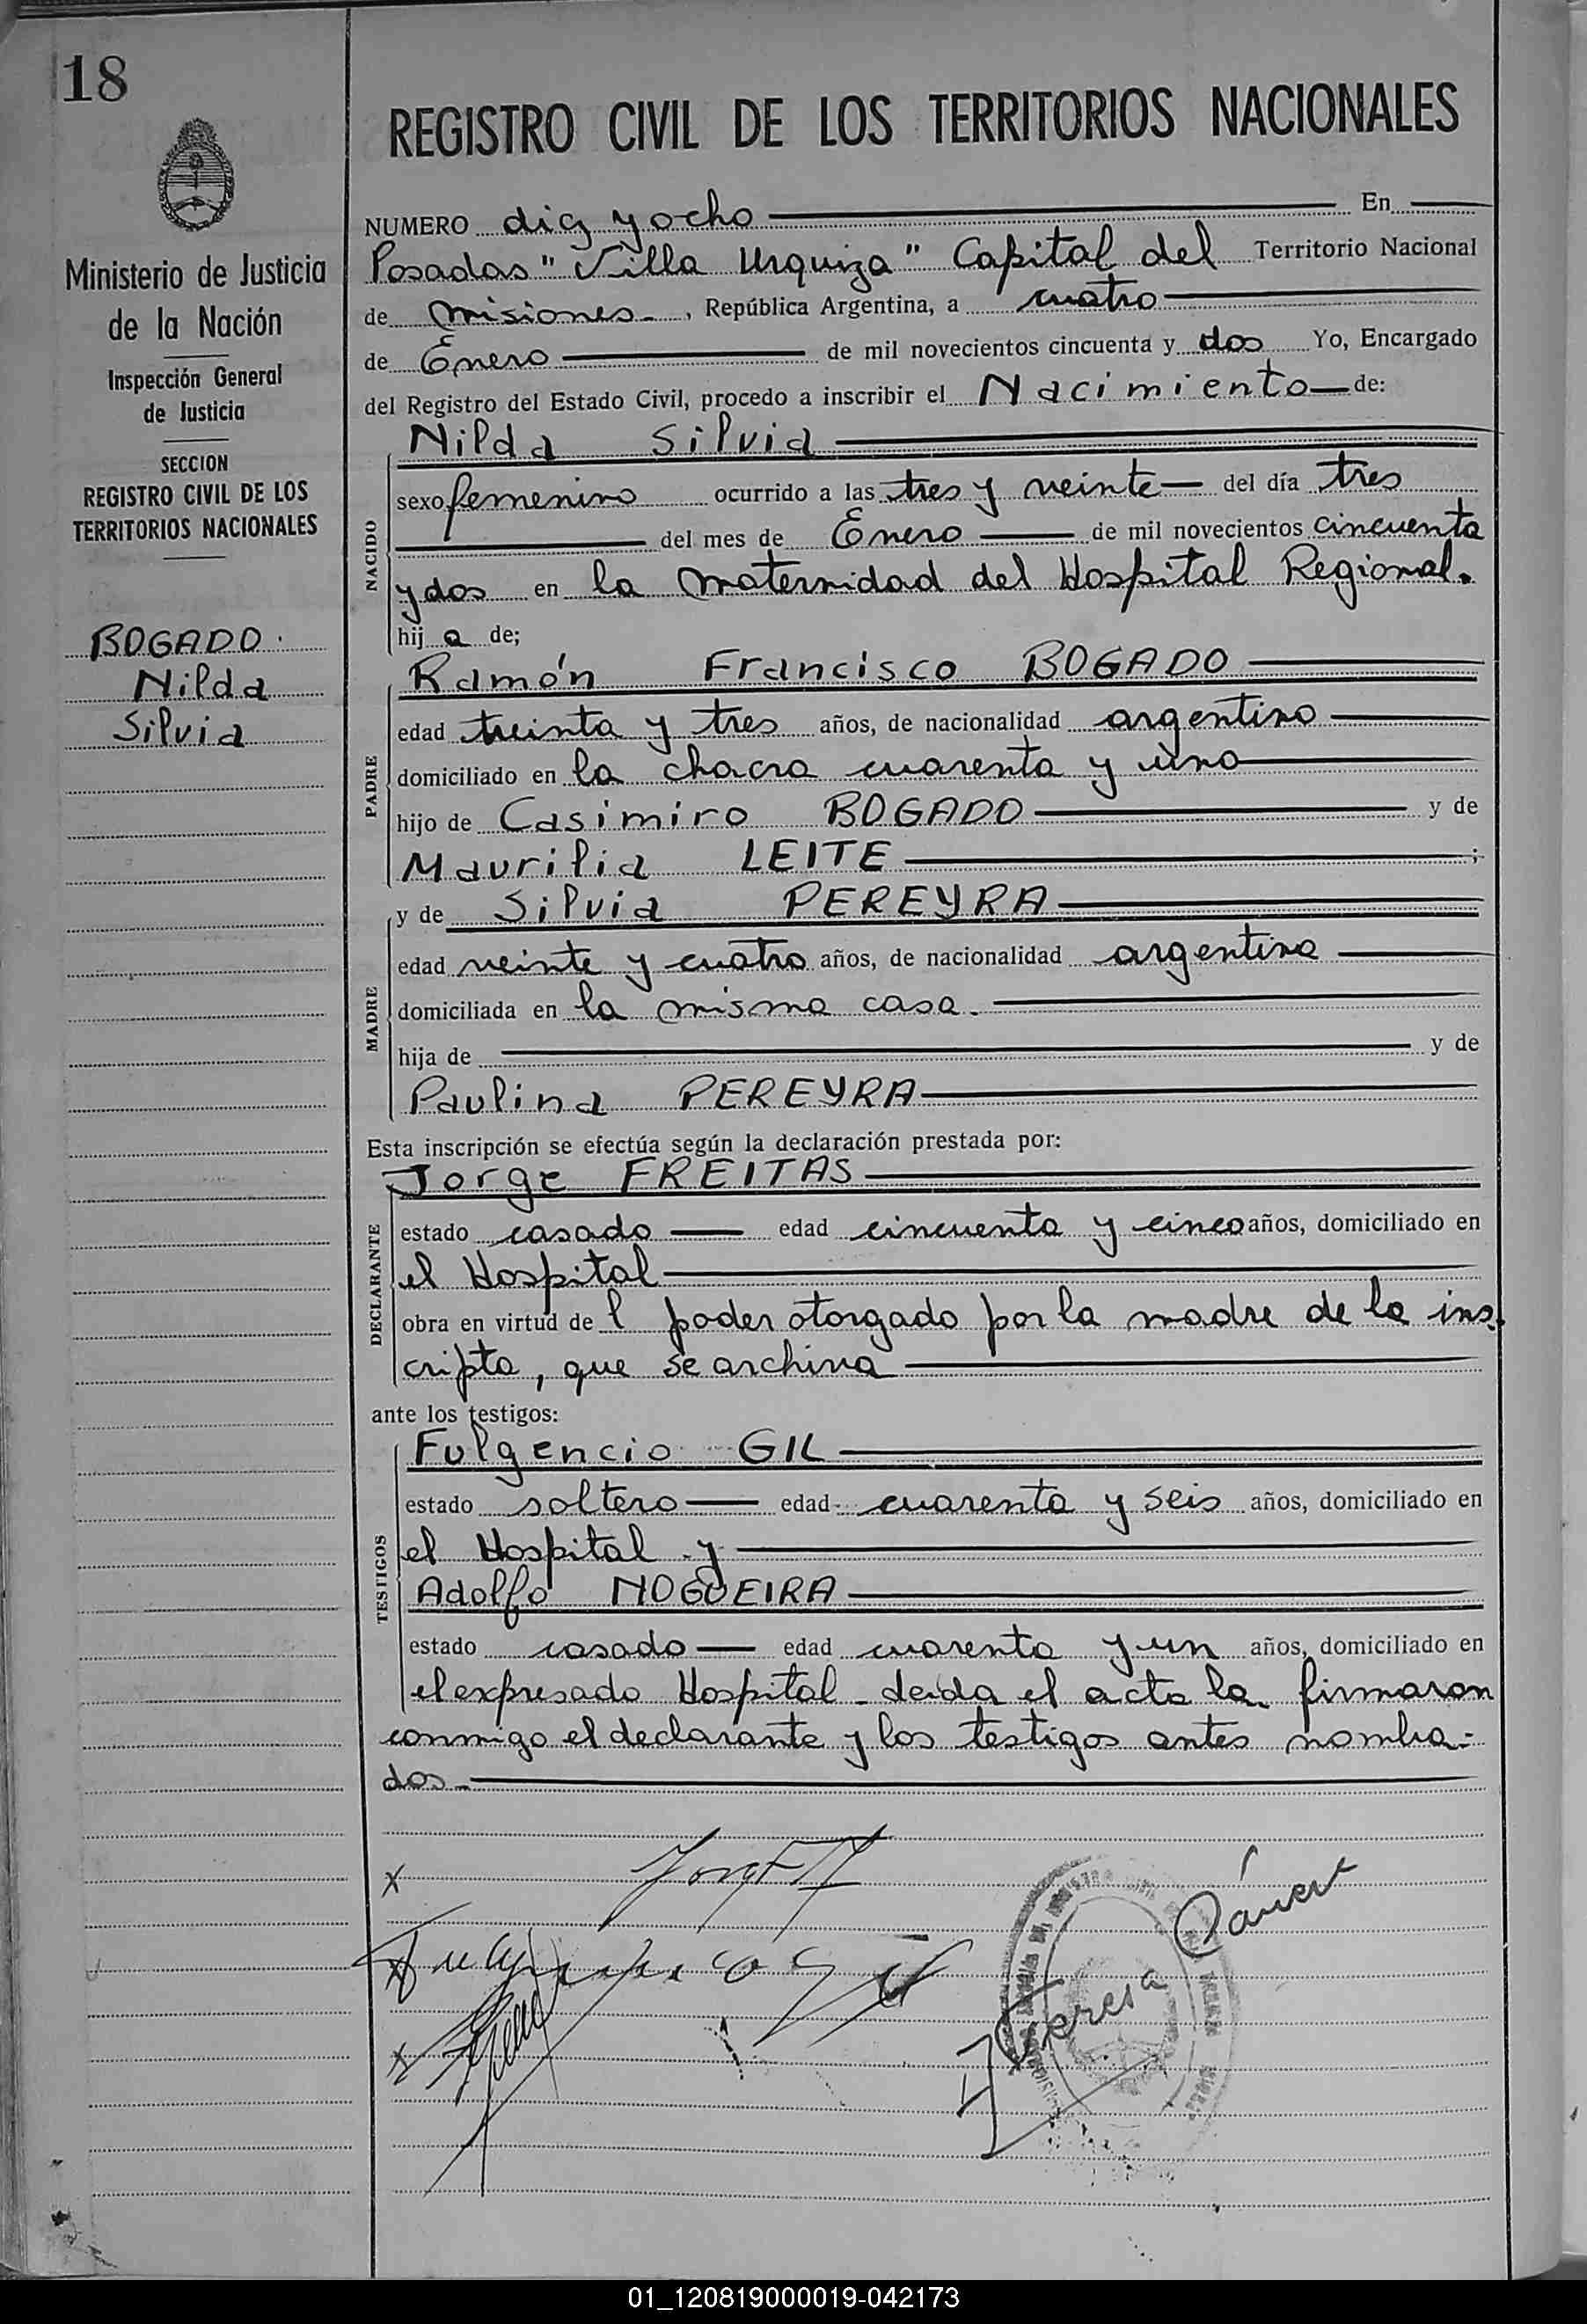 18
Ministerio de Justicia
de la Nación
Inspección General
de Justicia
SECCION
REGISTRO CIVIL DE LOS
TERRITORIOS NACIONALES
BOGADO.
Nilda
Silvia
REGISTRO CIVIL DE LOS TERRITORIOS NACIONALES
NUMERO diez y ocho En
Posadas "Villa Urquiza" Capital del Territorio Nacional
de Misiones, República Argentina, a cuatro
de Enero de mil novecientos cincuenta y dos Yo, Encargado
del Registro del Estado Civil, procedo a inscribir el Nacimiento de:
NACIDO
Nilda Silvia
sexo femenino ocurrido a las tres y veinte del día tres
del mes de Enero de mil novecientos cincuenta
y dos en la Maternidad del Hospital Regional.
hija de;
PADRE
Ramón Francisco BOGADO
edad treinta y tres años, de nacionalidad argentino
domiciliado en la chacra cuarenta y uno
hijo de Casimiro BOGADO y de
Maurilia LEITE;
MADRE
y de Silvia PEREYRA
edad veinte y cuatro años, de nacionalidad argentina
domiciliada en la misma casa.
hija de y de
Paulina PEREYRA
Esta inscripción se efectúa según la declaración prestada por:
DECLARANTE
Jorge FREITAS
estado casado edad cincuenta y cinco años, domiciliado en
el Hospital
obra en virtud del poder otorgado por la madre de la ins-
cripta, que se archiva
ante los testigos:
TESTIGOS
Fulgencio GIL
estado soltero edad cuarenta y seis años, domiciliado en
el Hospital y
Adolfo NOGUEIRA
estado casado edad cuarenta y un años, domiciliado en
el expresado Hospital - Leída el acta la firmaron
conmigo el declarante y los testigos antes nombra-
dos.-
x
x
x
Teresa
01_120819000019-042173